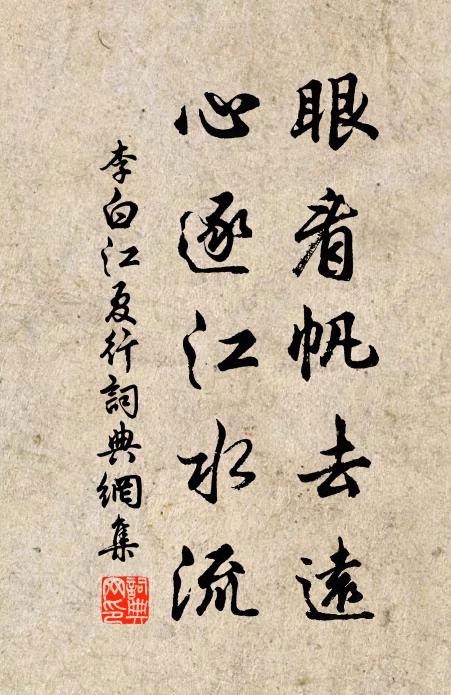 眼看帆去遠
心逐江水流
李白江夏行詞典網集
詞典网印